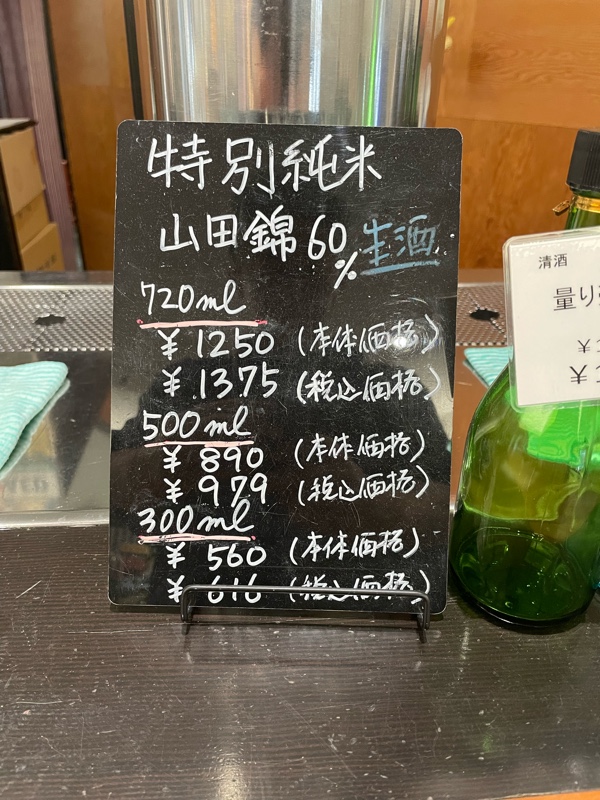 特別純米
山田錦60% 生酒
720ml
¥1250 (本体価格)
¥1375 (税込価格)
500ml
¥890 (本体価格)
¥979 (税込価格)
300ml
¥560 (本体価格)
¥616 (税込価格)
清酒
量り
¥
¥